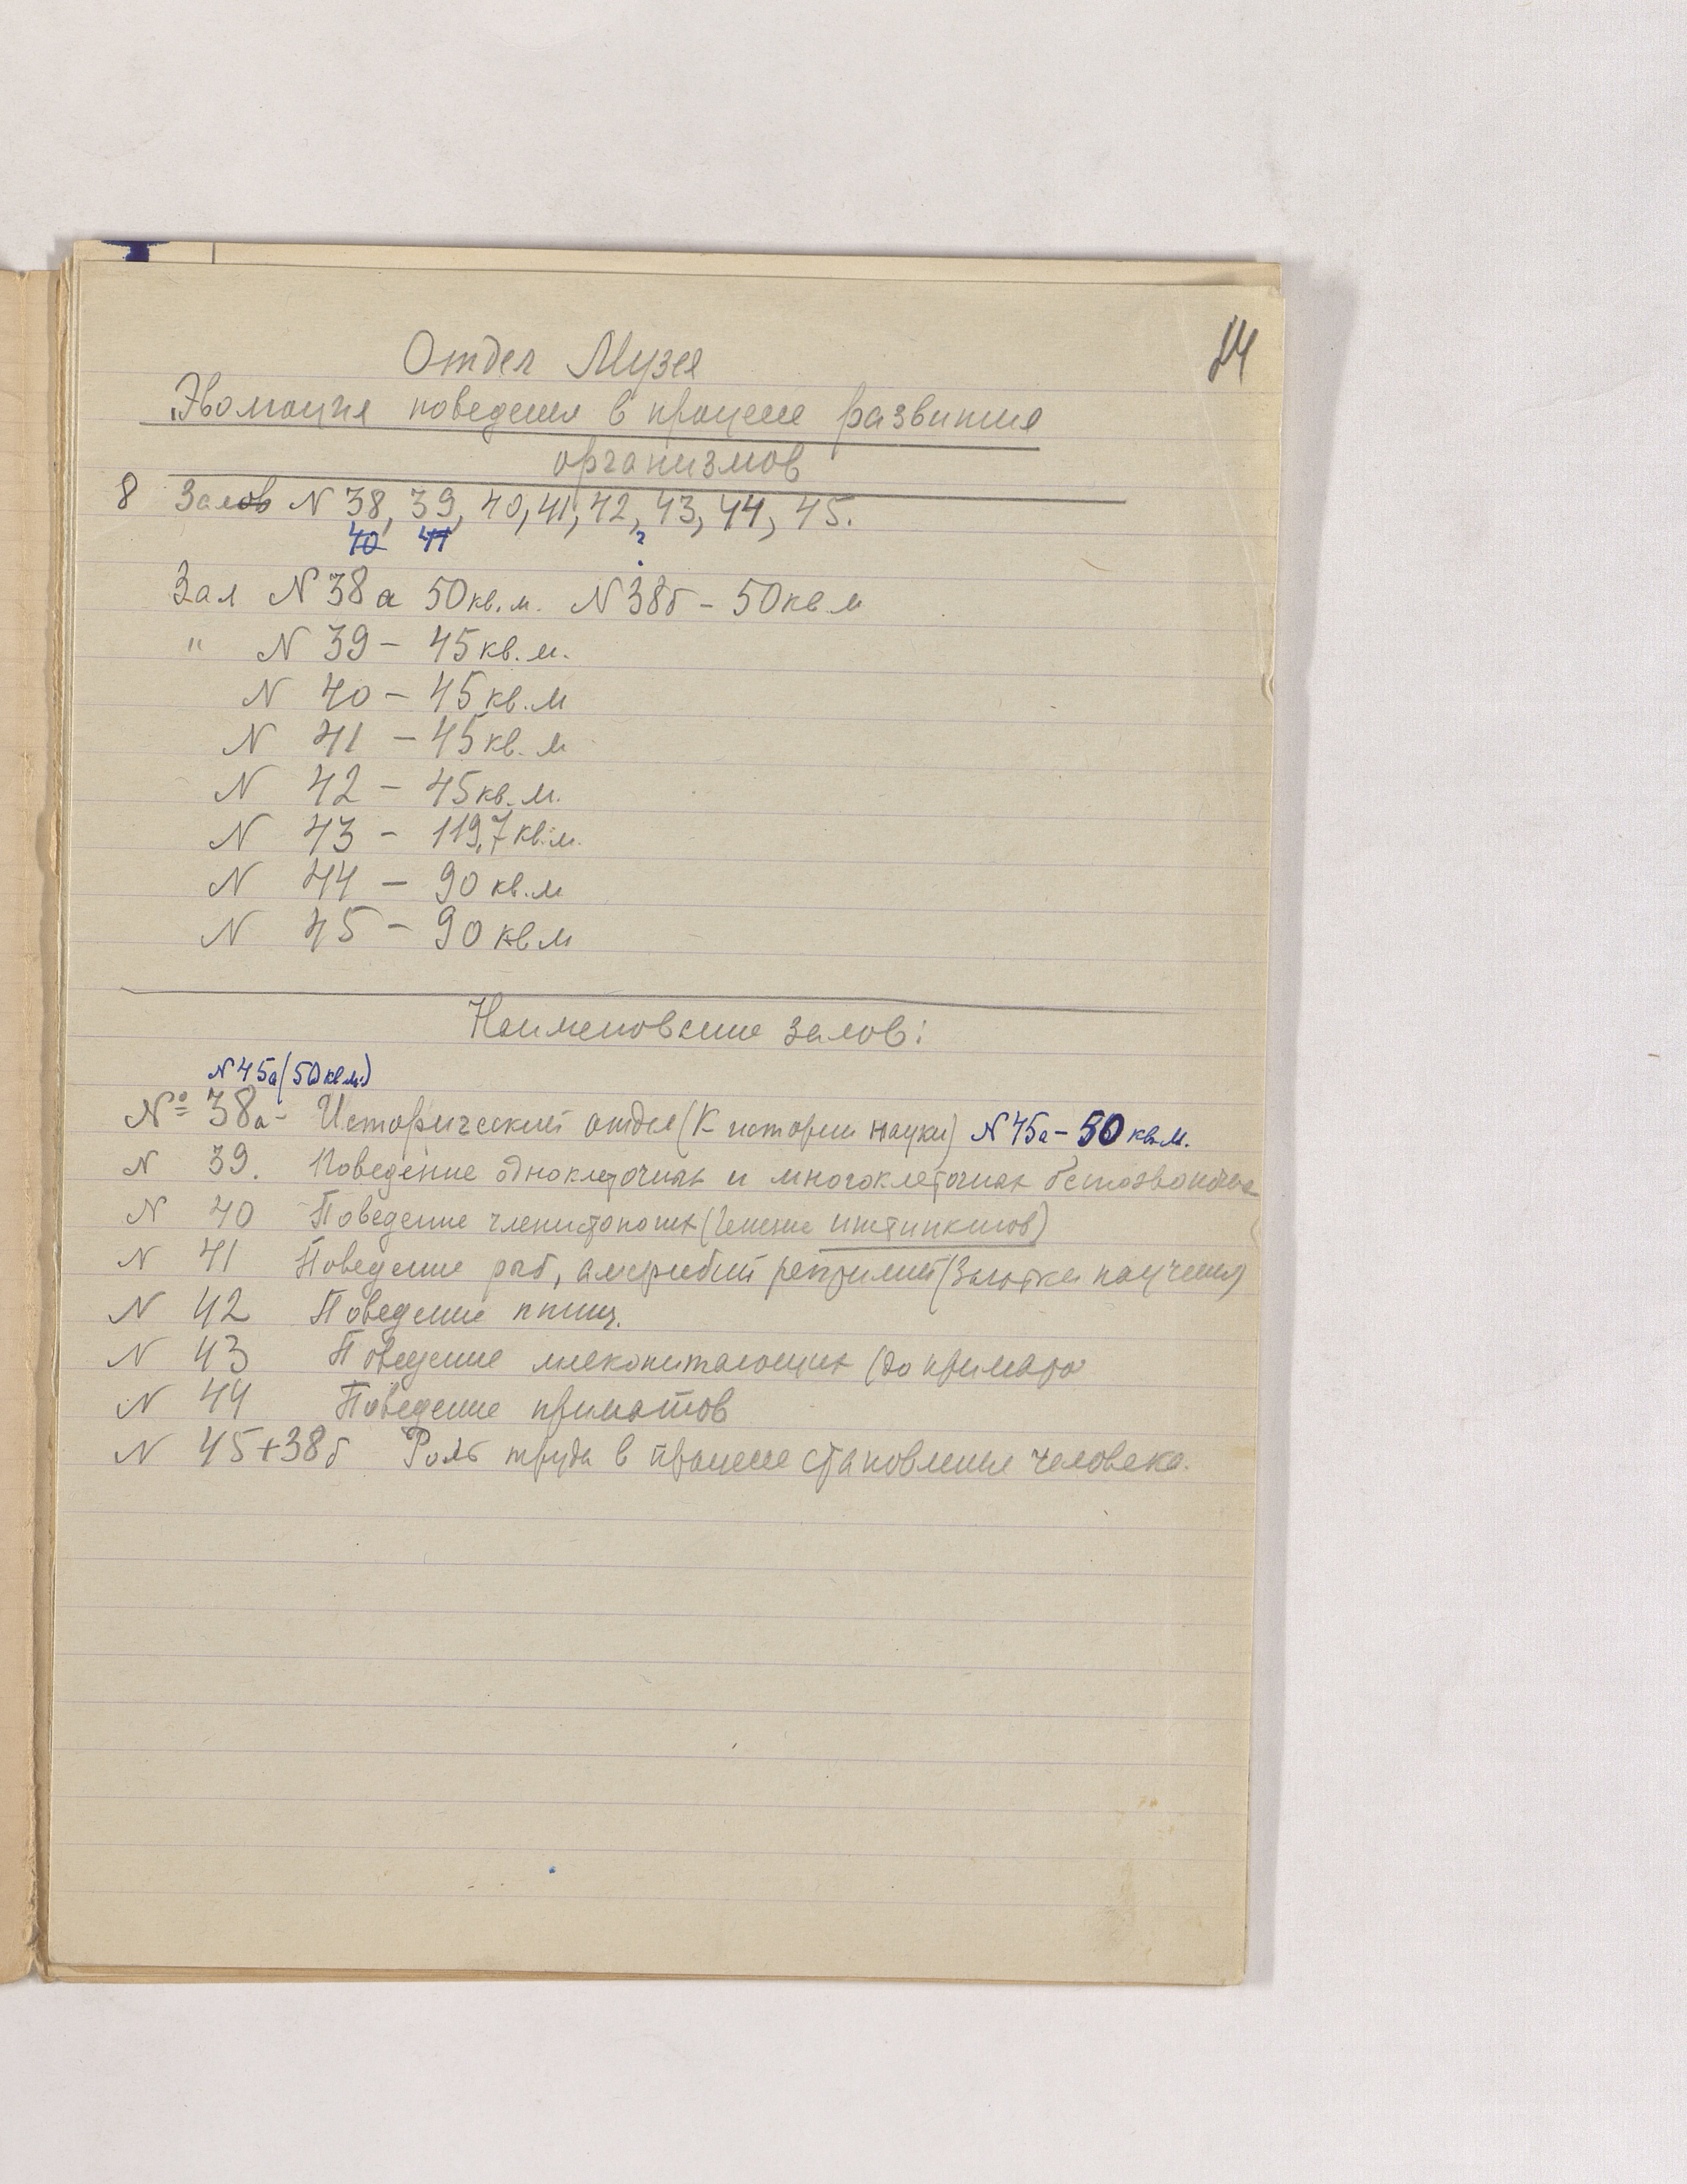 24
Отдел Музея
Эволюция поведения в процессе развития
организмов
8 Залов N 38, 39, 40, 41, 42, 43, 44, 45.
40 41 ?
Зал N 38а 50 кв. м. N 38б – 50 кв м
" N 39 – 45 кв. м.
N 40 – 45 кв. м
N 41 – 45 кв. м
N 42 – 45 кв. м.
N 43 – 119,7 кв. м.
N 44 – 90 кв. м
N 45 – 90 кв м
Наименование залов:
N 45а (50 кв м.)
№ 38а – Исторический отдел (К истории науки) N 45а – 50 кв. м.
N 39. Поведение одноклеточных и многоклеточных беспозвоночных
N 40 Поведение членистоногих (Генезис инстинктов)
N 41 Поведение рыб, амфибий рептилий (Зачатки научения)
N 42 Поведение птиц.
N 43 Поведение млекопитающих (до приматов
N 44 Поведение приматов
N 45+38б Роль труда в процессе становления человека.